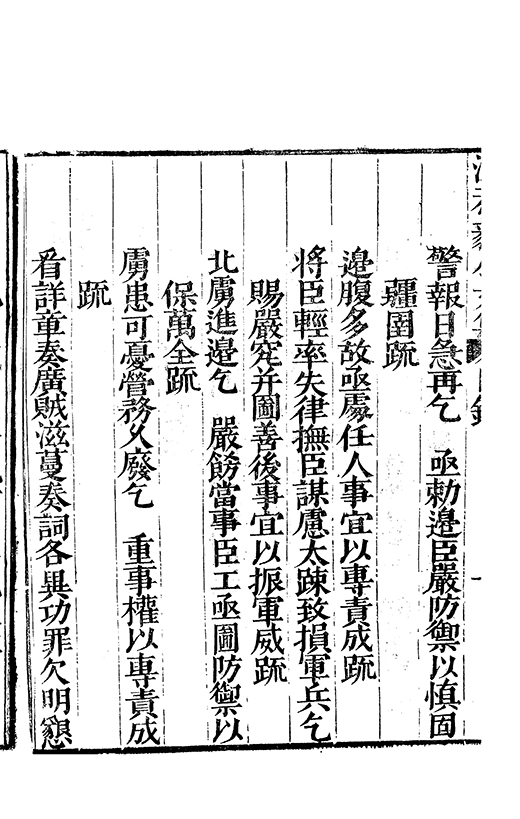 警報日急再乞　亟勑邊臣嚴防禦以慎固
疆圉疏
邊腹多故亟處任人事宜以專責成疏
將臣輕率失律撫臣謀慮太踈致損軍兵乞
賜嚴究并圖善後事宜以振軍威疏
北虜進邊乞　嚴飭當事臣工亟圖防禦以
保萬全疏
虜患可憂營務久廢乞　重事權以專責成
疏
看詳章奏廣賊滋蔓奏詞各異功罪欠明懇